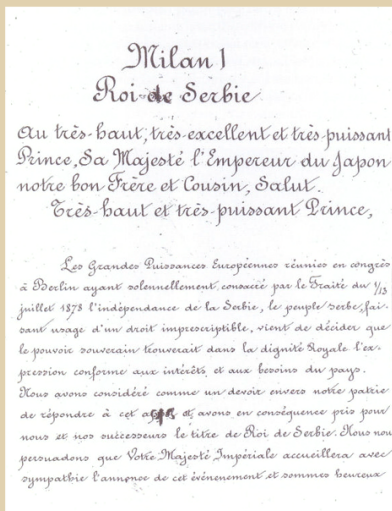 Milan I
Roi de Serbie
Au très-haut, très-excellent et très-puissant
Prince, Sa Majesté l'Empereur du Japon
notre bon Frère et Cousin, Salut.
Très-haut et très-puissant Prince,
Les Grandes Puissances Européennes réunies en congrès
à Berlin ayant solennellement consacré par le Traité du 1/13
juillet 1878 l'indépendance de la Serbie, le peuple serbe, fai-
sant usage d'un droit imprescriptible, vient de décider que
le pouvoir souverain trouverait dans la dignité Royale l'ex-
pression conforme aux intérêts et aux besoins du pays.
Nous avons considéré comme un devoir envers notre patrie
de répondre à cet et avons en conséquence pris pour
nous et nos successeurs le titre de Roi de Serbie. Nous nou
persuadons que Votre Majesté Impériale accueillera avec
sympathie l'annonce de cet événenement et sommes heureux